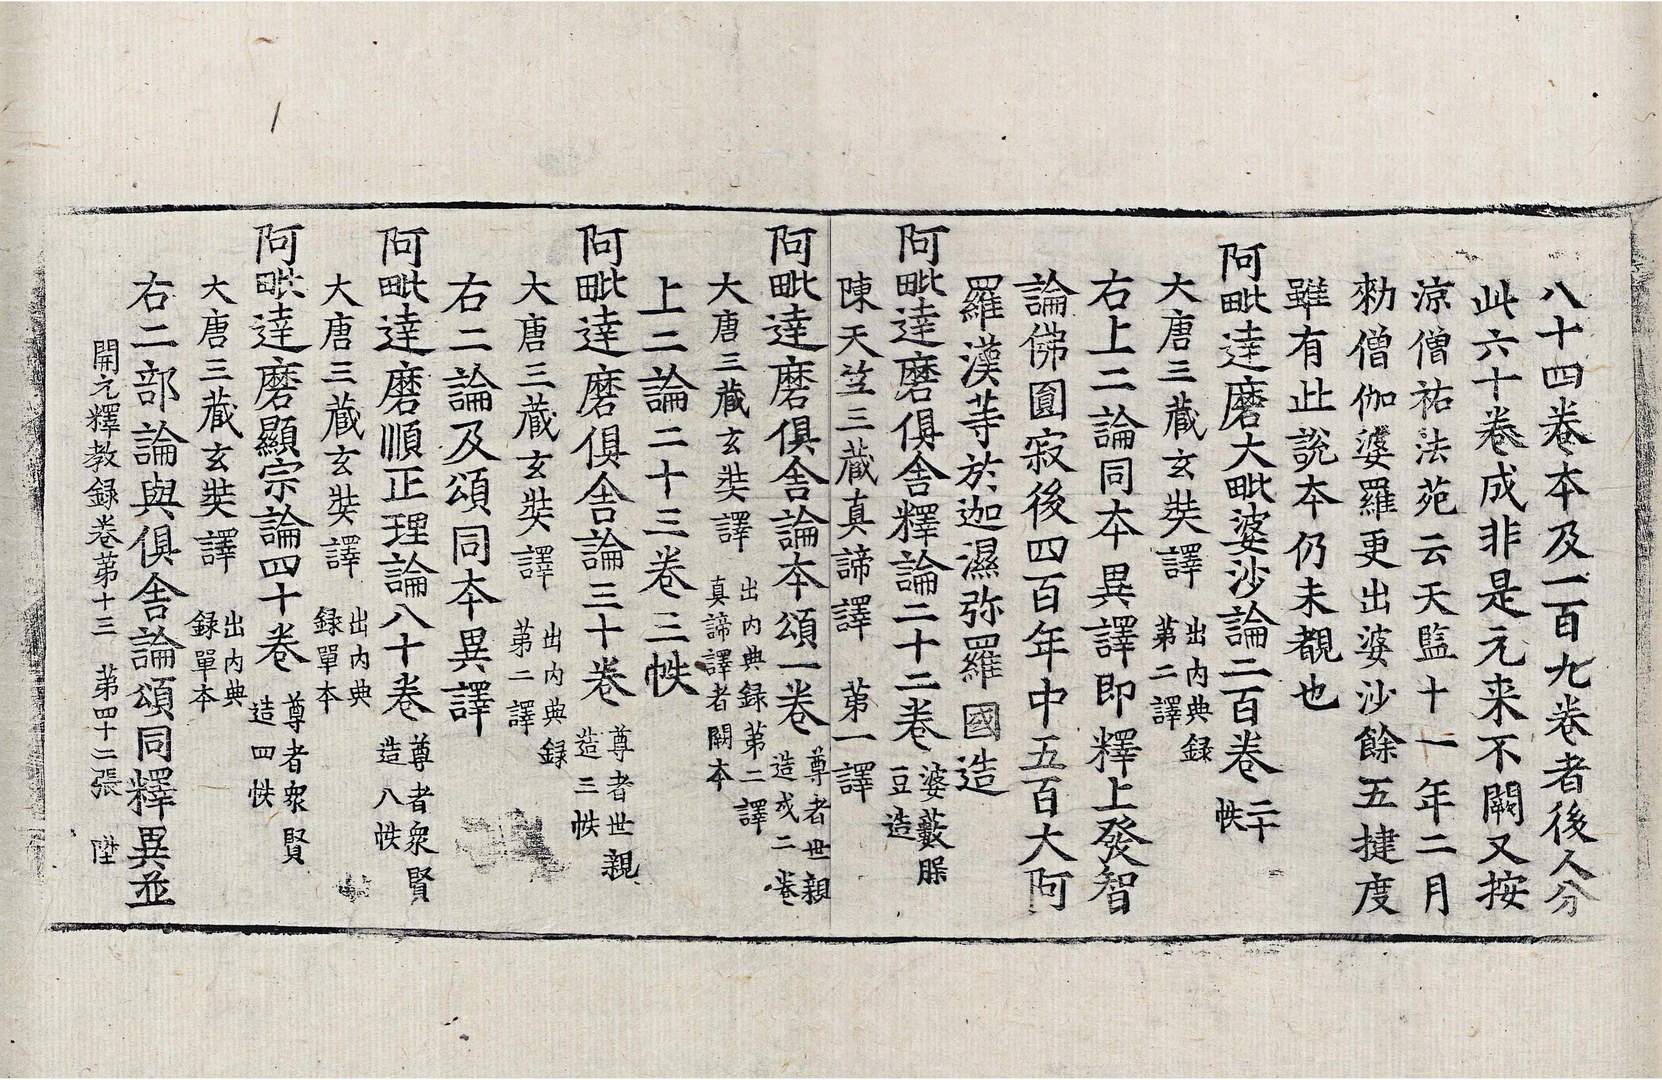 八十四卷本及一百九卷者後人分
此六十卷成非是元来不闕又按
涼僧祐法苑云天監十一年二月
勑僧伽婆羅更出婆沙餘五揵度
雖有此說本仍未覩也
阿毗達磨大毗婆沙論二百卷 二十帙
大唐三藏玄奘譯 出內典録第二譯
右上二論同本異譯即釋上發智
論佛圓寂後四百年中五百大阿
羅漢等於迦濕弥羅國造
阿毗達磨俱舍釋論二十二卷 婆藪盤豆造
陳天竺三藏真諦譯 第一譯
阿毗達磨俱舍論本頌一卷 尊者世親造或二卷
大唐三藏玄奘譯 出內典録第二譯真諦譯者闕本
上二論二十三卷三帙
阿毗達磨俱舍論三十卷 尊者世親造三帙
大唐三藏玄奘譯 出內典録第二譯
右二論及頌同本異譯
阿毗達磨順正理論八十卷 尊者衆賢造八帙
大唐三藏玄奘譯 出內典録單本
阿毗達磨顯宗論四十卷 尊者衆賢造四帙
大唐三藏玄奘譯 出內典録單本
右二部論與俱舍論頌同釋異並
開元釋教録卷第十三 第四十二張 陞